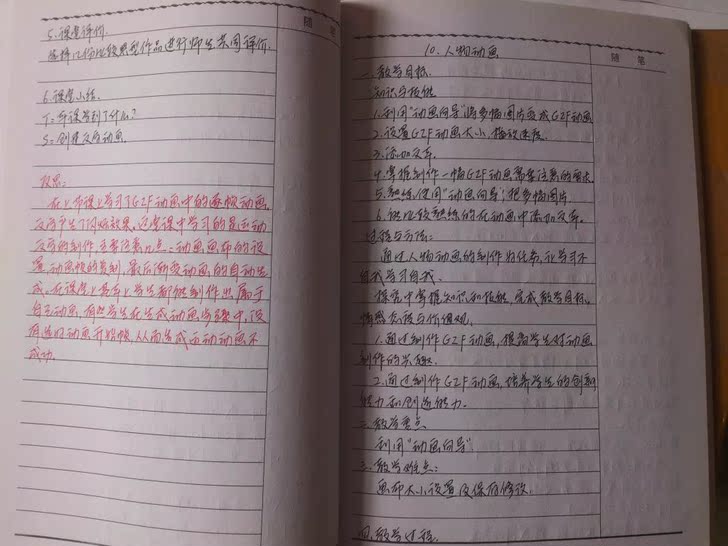 随 笔
5. 课堂评价.
选择几份比较典型作品进行师生共同评价.
6. 课堂小结.
T: 节课学到了什么?
S: 创建文字动画.
反思:
在上节课上学习了GIF动画中的逐帧动画,
文字产生了闪烁效果,这堂课中学习的是运动
文字的制作,主要注意几点:动画画布的设
置,动画帧的复制,最后的变动画的自动生
成。在课堂上基本上学生都能制作出属于
自己动画,有些学生在生成动画步骤中,没
有选回动画开始帧,从而生成运动动画不
成功.
随 笔
10. 人物动画
一.教学目标.
知识与技能
1.利用"动画向导"将多幅图片变成GIF动画
2.设置GIF动画大小、播放速度.
3.添加文本.
4.掌握制作一幅GIF动画需要注意的要求
5.熟练使用"动画向导",把多幅图片.
6.能比较熟练的在动画中添加文本.
过程与方法:
通过人物动画的制作为任务,让学习
自我学习自我.
探究中掌握知识和技能,完成教学目标.
情感态度与价值观.
1.通过制作GIF动画,提高学生对动画
制作的兴趣.
2.通过制作GIF动画,培养学生的创新
能力和创造能力.
二.教学重点
利用"动画向导"
三.教学难点:
画布大小设置及保存修改.
四.教学过程.